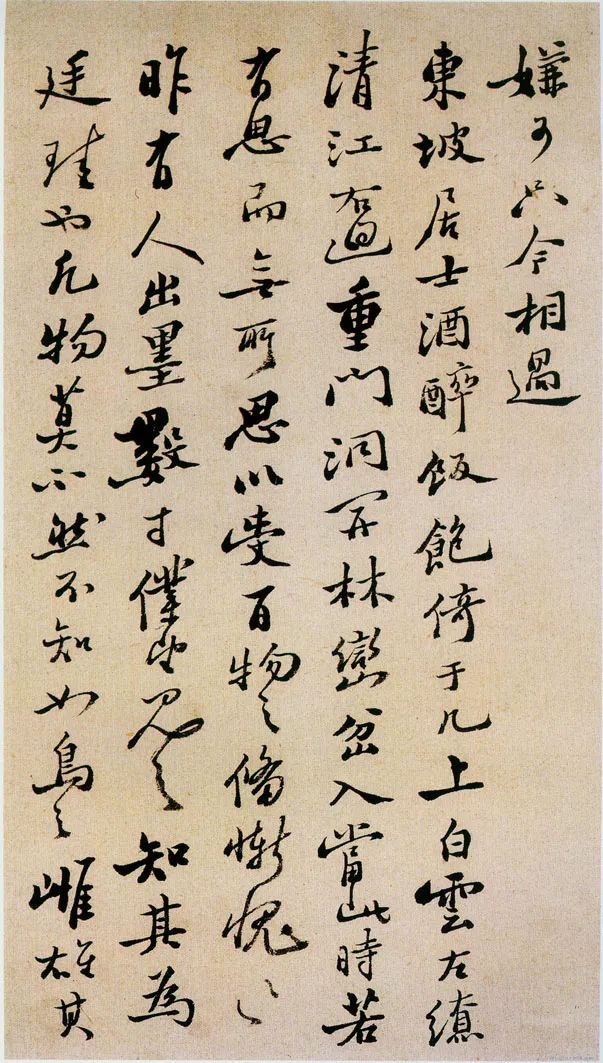 嫌可只今相過
東坡居士酒醉飯飽倚于几上白雲左繚
清江右洄重門洞開林巒坌入當此時若
有思而無所思以受百物之備慚愧〻
昨有人出墨數寸僕望見之知其為
廷珪也凡物莫不然不知如鳥之雌雄其